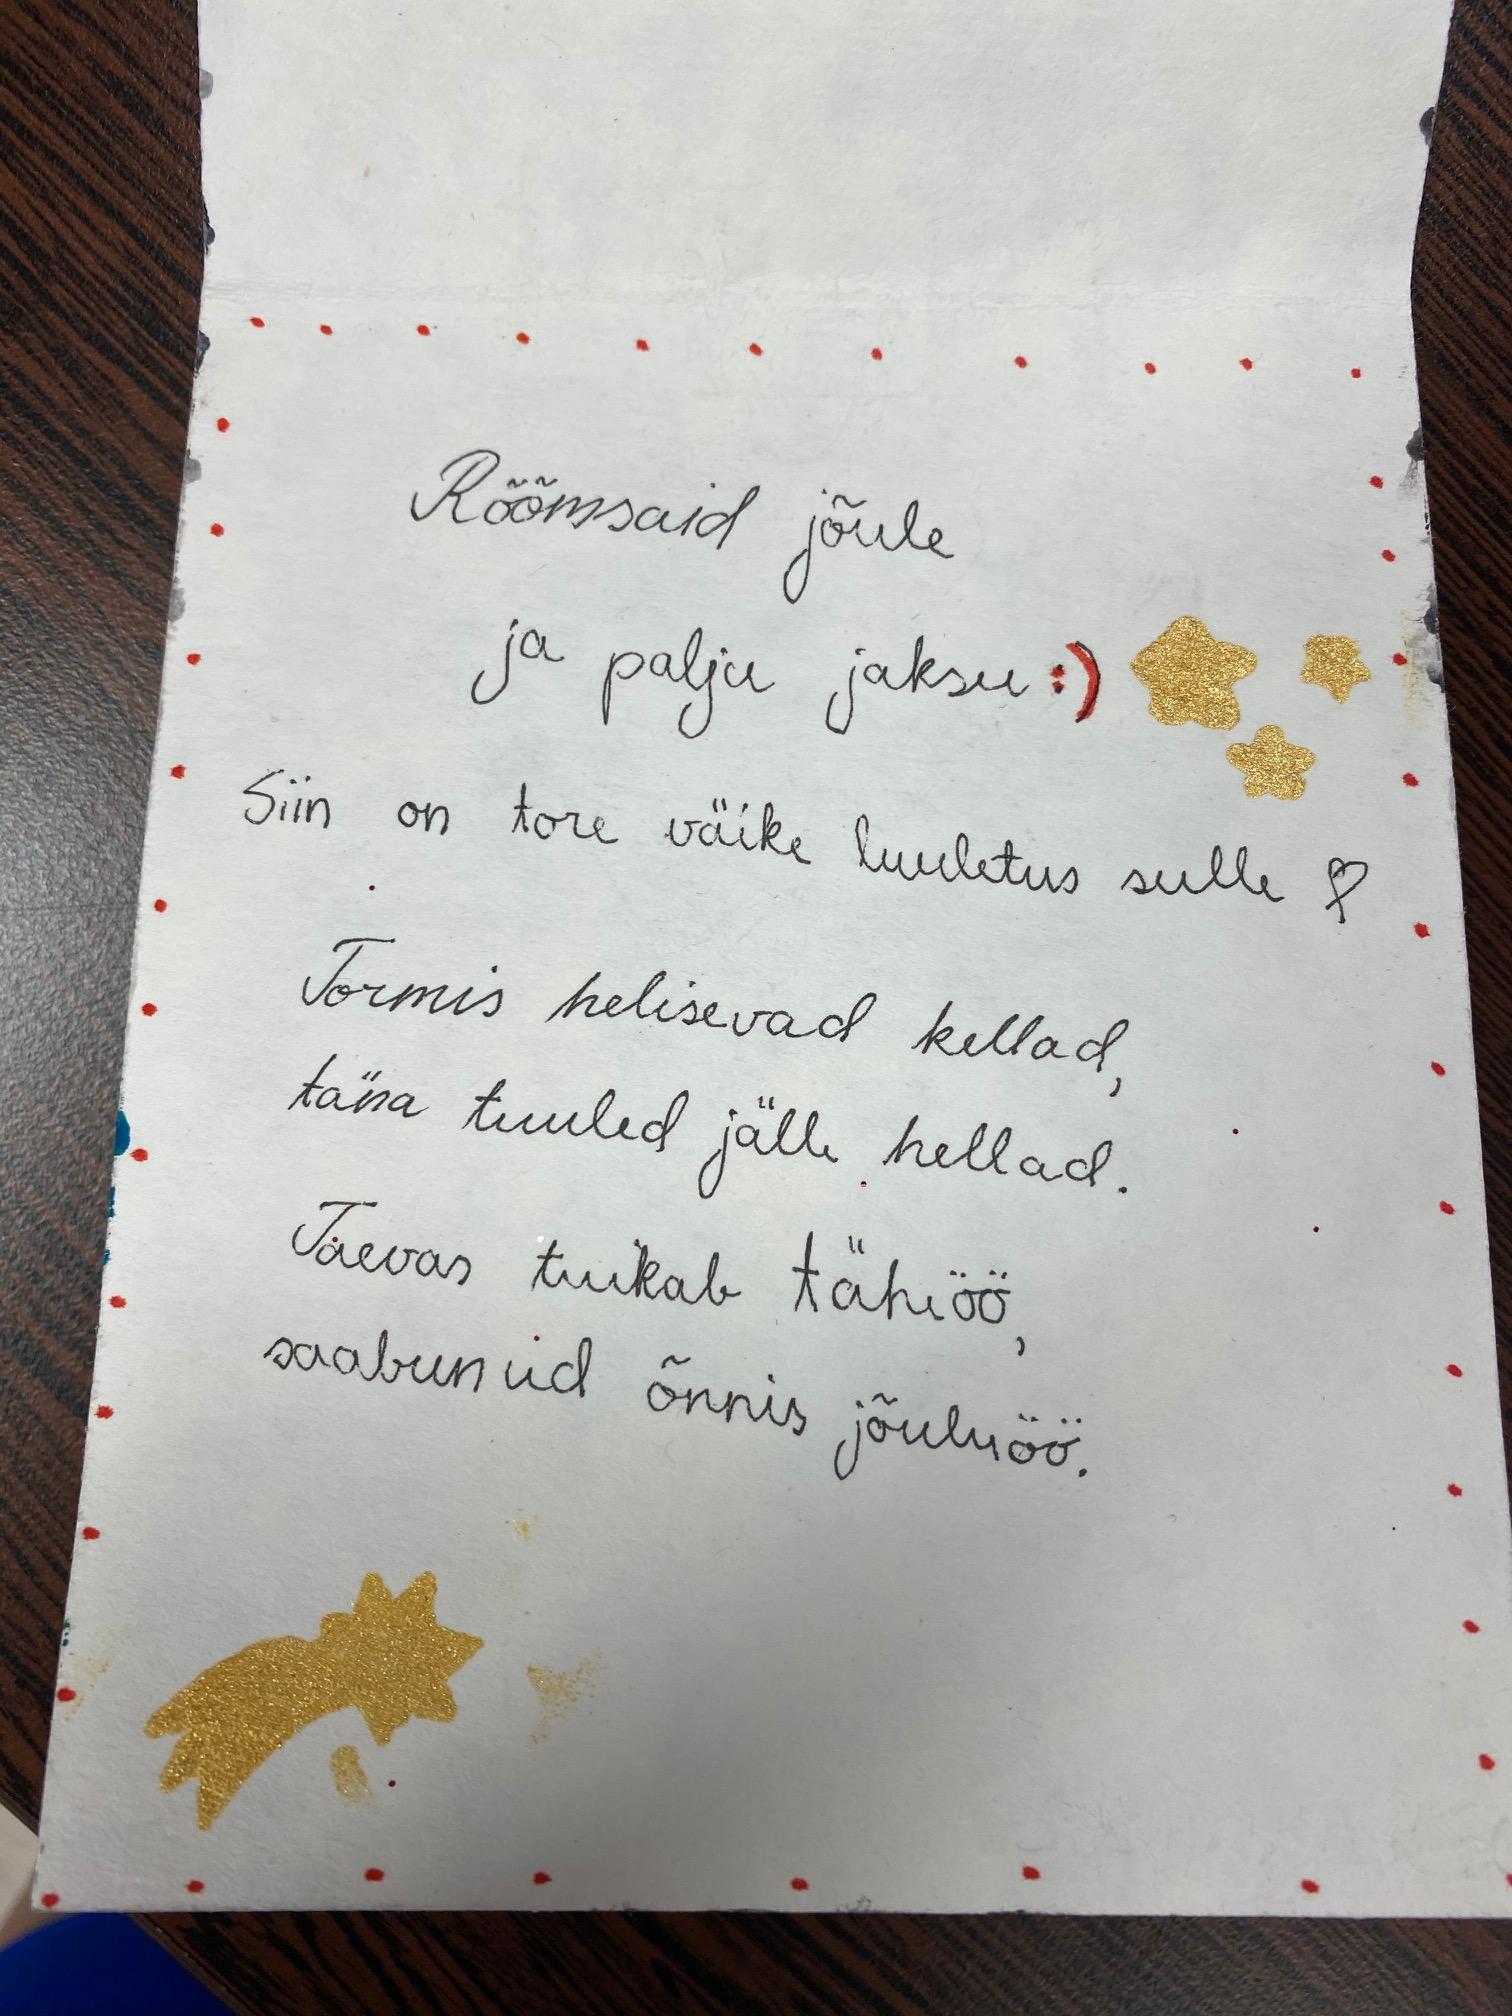 Rõõmsaid jõule
ja palju jaksu :)
Siin on tore väike luuletus sulle ♡
Tormis helisevad kellad,
täna tuuled jälle hellad.
Taevas tuikab tähiöö,
saabunud õnnis jõuluöö.